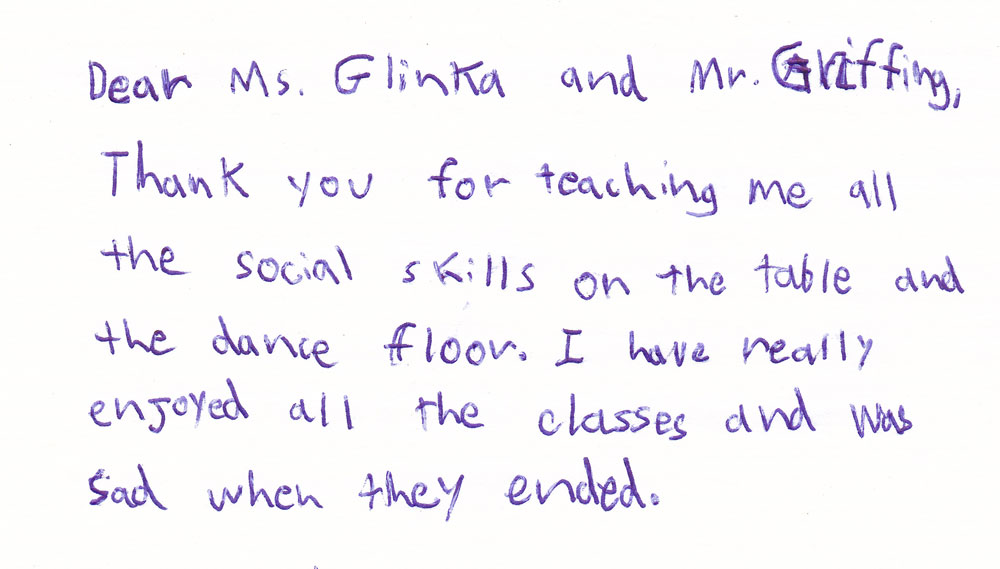 Dear Ms. Glinka and Mr. Griffing,
Thank you for teaching me all
the social skills on the table and
the dance floor. I have really
enjoyed all the classes and was
sad when they ended.